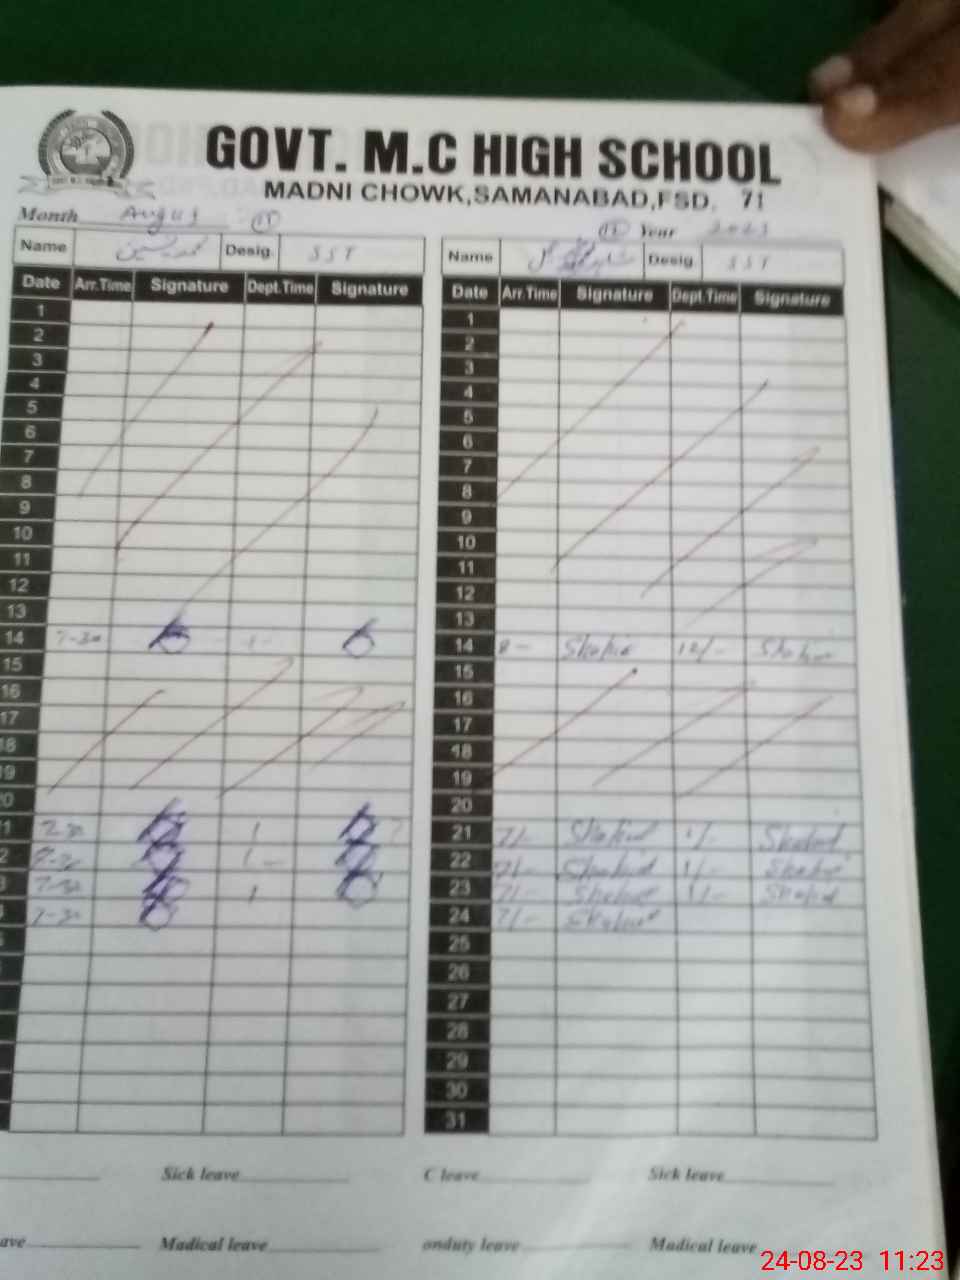 GOVT. M.C HIGH SCHOOL
MADNI CHOWK,SAMANABAD,FSD. 71
Month August 15
15 Year 2023
Name Desig. SST
Name Desig. SST
Date Arr.Time Signature Dept.Time Signature
Date Arr.Time Signature Dept.Time Signature
1 1
2 2
3 3
4 4
5 5
6 6
7 7
8 8
9 9
10 10
11 11
12 12
13 13
14 7-30 1- 14 8- Shahid 12/- Shahid
15 15
16 16
17 17
18 18
19 19
20 20
21 7-30 1 21 7/- Shahid 1/- Shahid
22 7-30 1- 22 7/- Shahid 1/- Shahid
23 7-30 1 23 7/- Shahid 1/- Shahid
24 7-30 24 7/- Shahid
25
26
27
28
29
30
31
Sick leave C leave Sick leave
Madical leave onduty leave Madical leave
24-08-23 11:23